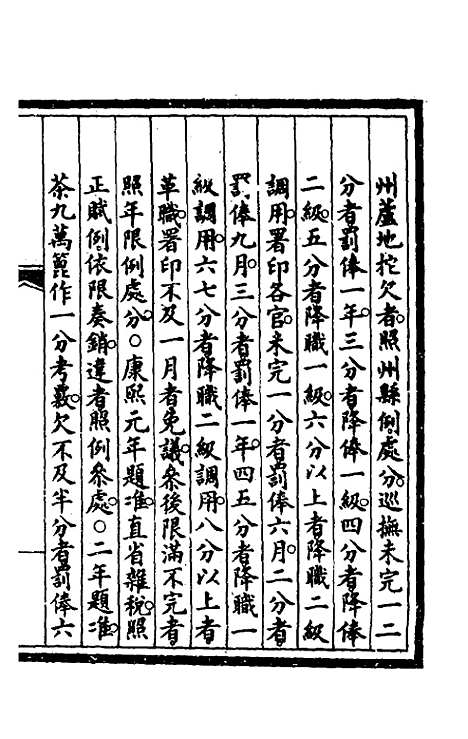 州蘆地拕欠者。照州縣例處分。巡撫未完一二
分者罰俸一年。三分者降俸一級。四分者降俸
二級。五分者降職一級。六分以上者降職二級
調用。署印各官。未完一分者罰俸六月。二分者
罰俸九月。三分者罰俸一年。四五分者降職一
級調用。六七分者降職二級調用。八分以上者
革職。署印不及一月者免議。叅後限滿不完者
照年限例處分。○康熙元年題准。直省雜稅。照
正賦例。依限奏銷。違者照例叅處。○二年題准。
茶九萬篦作一分考覈。欠不及半分者罰俸六